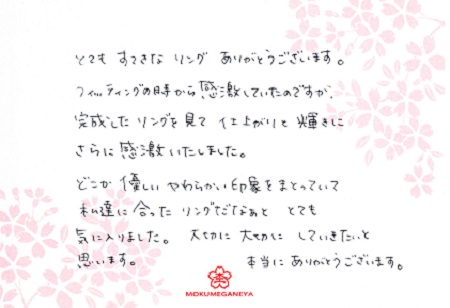 とても すてきな リング ありがとうございます。
フィッティングの時から感激していたのですが、
完成したリングを見て 仕上がりと 輝きに
さらに感激いたしました。
どこか 優しい やわらかい印象をまとっていて
私達に 合った リングだなぁと とても
気に入りました。 大切に 大切に していきたいと
思います。 本当に ありがとうございます。
MOKUMEGANEYA